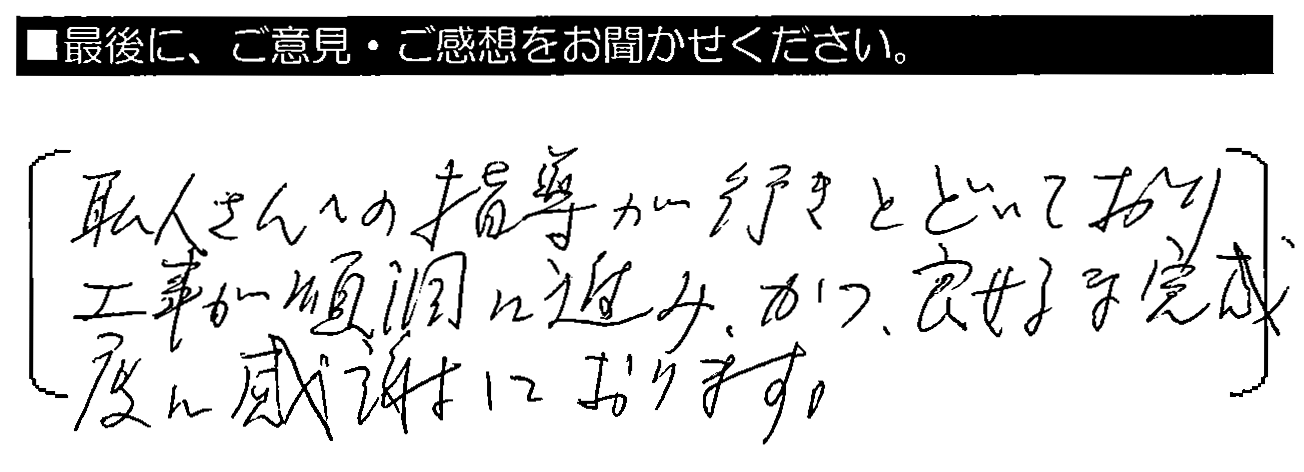 ■最後に、ご意見・ご感想をお聞かせください。
職人さんへの指導が行きとどいており
工事が順調に進み、かつ、良好な完成
度に感謝しております。